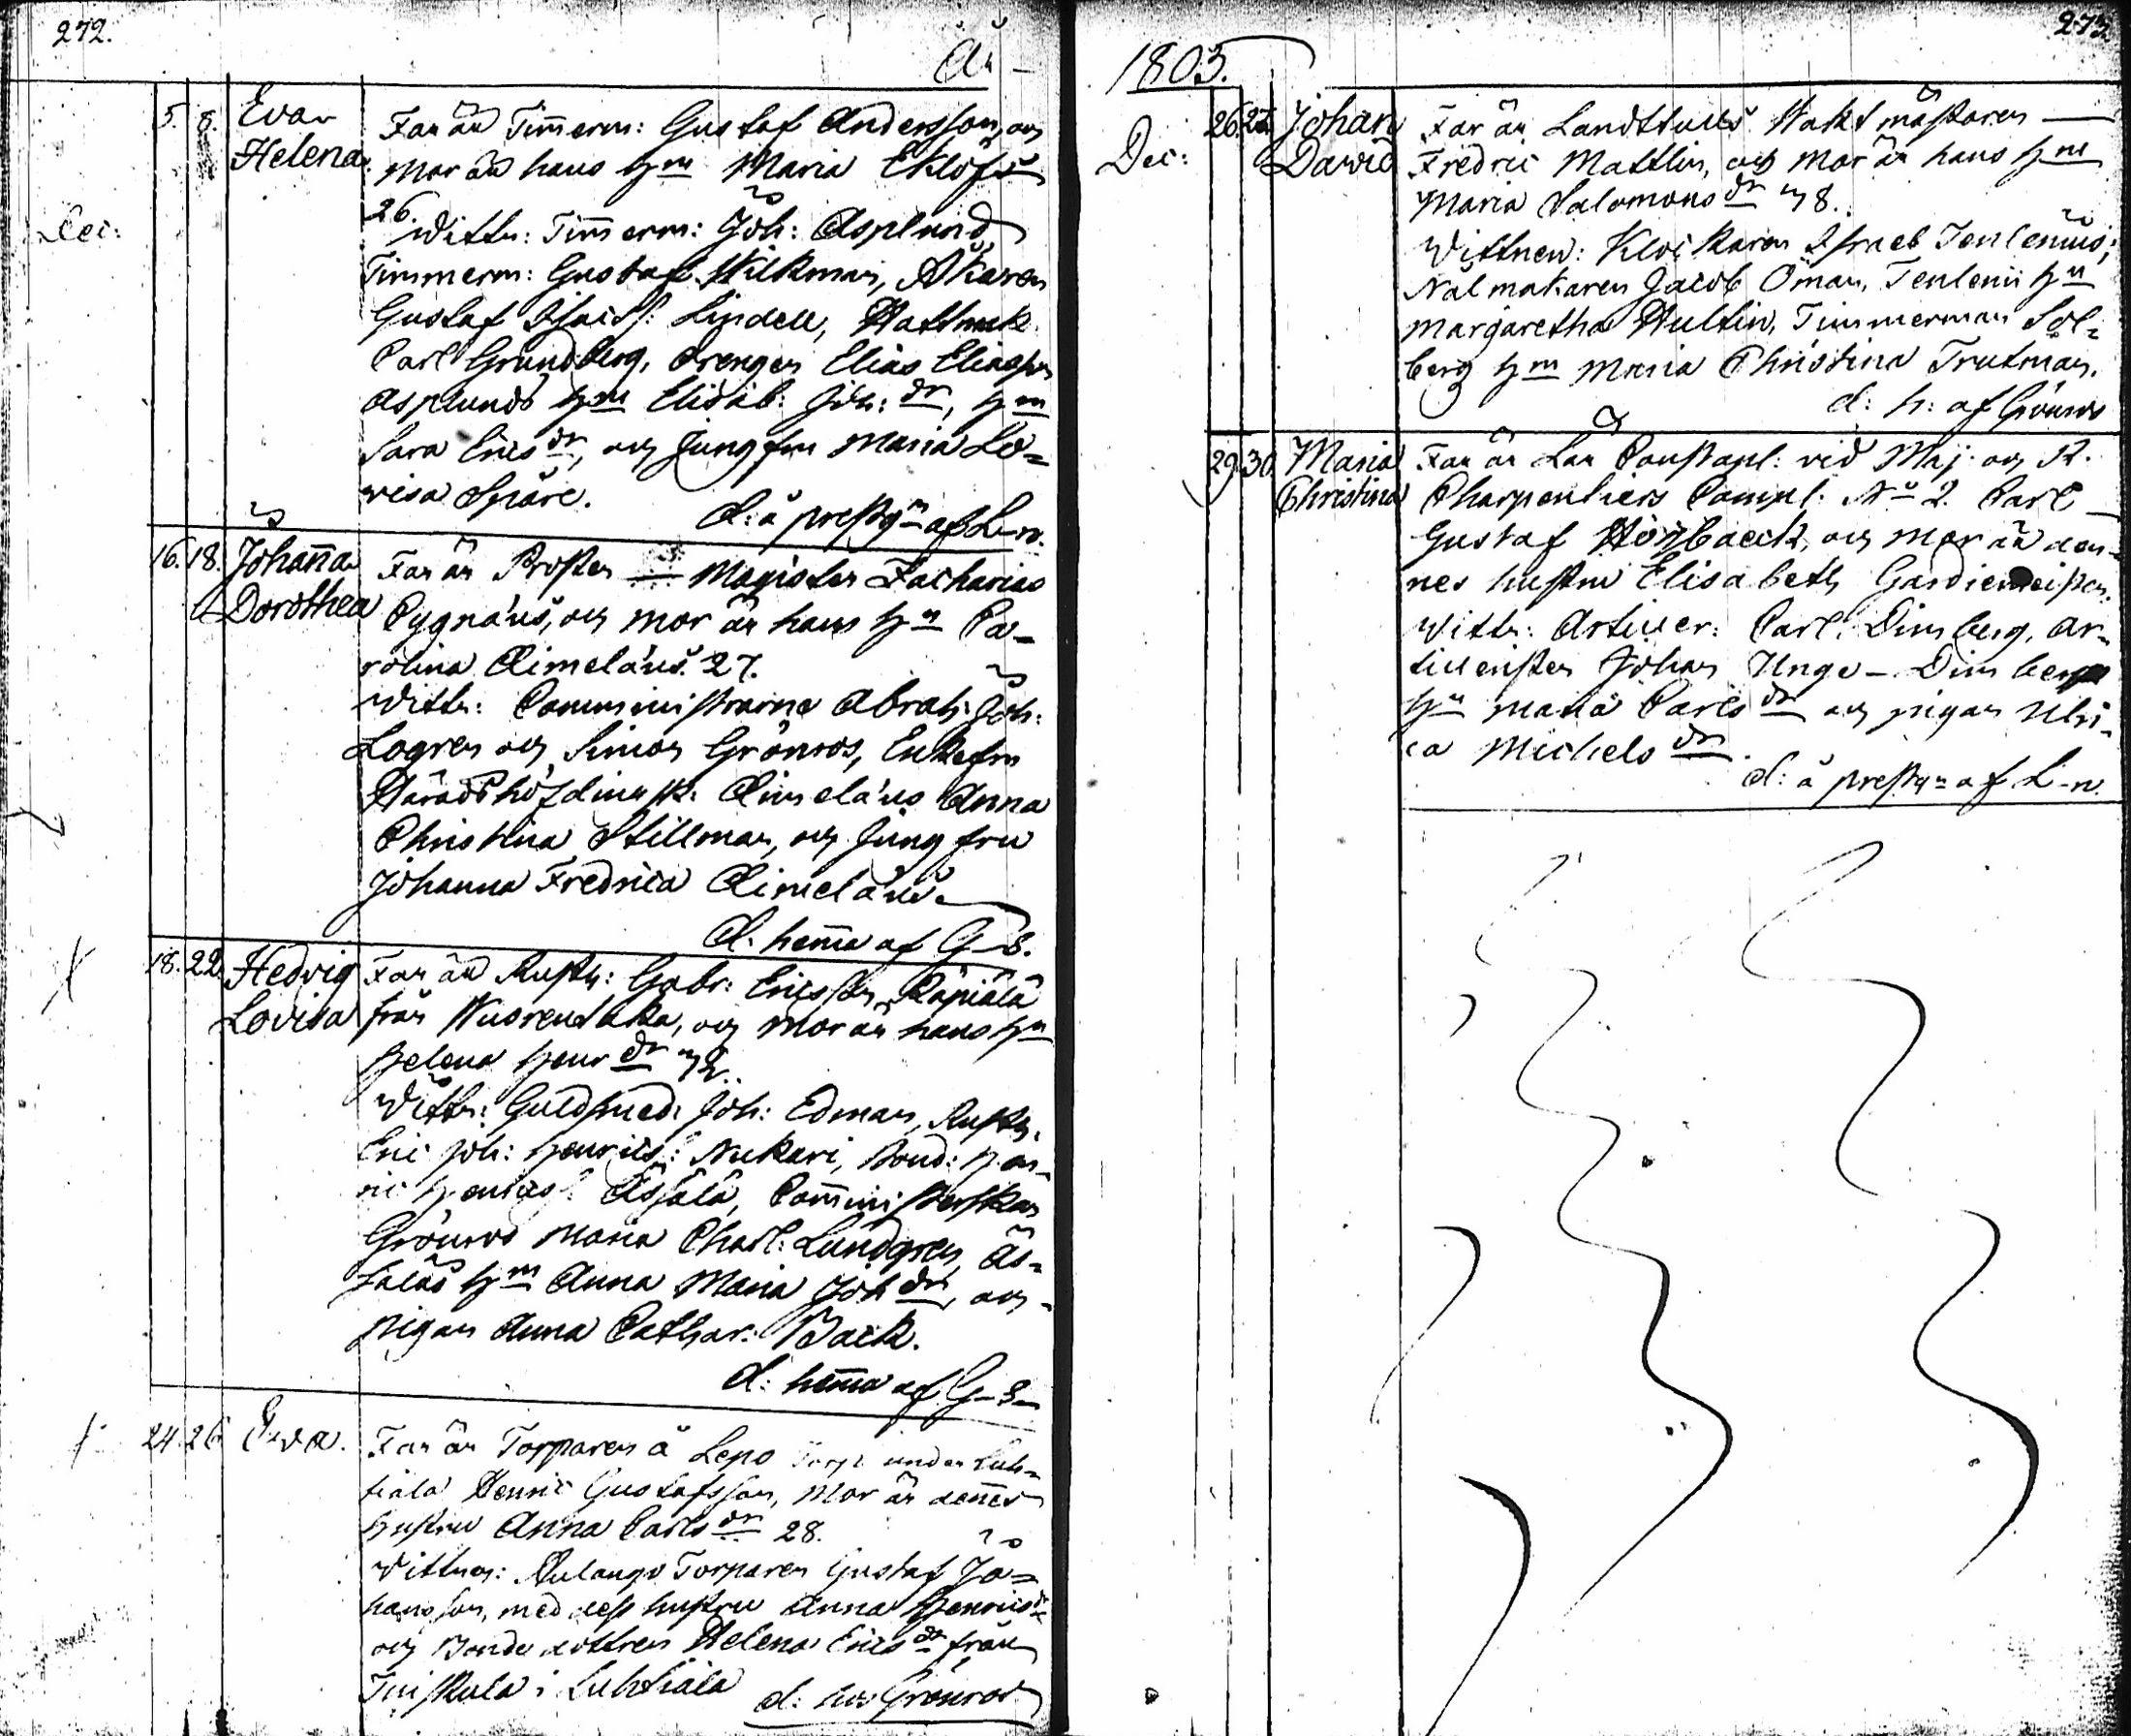 272.
År
Dec:
5. 8. Eva
Helena.
Far är Timmerm: Gustaf Andersson, och
Mor är hans h:u Maria Eklöf
26.
Wittn: Timmerm: Joh: Asplund,
Timmerm: Gustaf Wilkman, Åkaren
Gustaf Lindell, Hattmak
Carl Grundberg, Drengen Elias Eliasson
Asplunds h:u Elisab: Joh: dr,
Sara Erics dr, och Jungfru Maria Lo=
visa Spåre.
d: å prestg:n af L-n.
16. 18. Johanna
Dorothea
Far är Prosten Magister Zacharias
Cygnäus, och Mor är hans h:u Ca-
rolina Aimeläus. 27.
Wittn: Comministrarne Abrah: Joh:
Logren och Simon Grönros, Enkefru
Häradshöfdinsk: Aimeläus Anna
Christina Stillman, och Jungfru
Johanna Fredrica Aimeläus
d. hemma af G-s.
18. 22. Hedvig
Lovisa
Far är Rusth: Gabr: Ericsson
från Wuorentaka, och Mor är hans h:u
Helena Henr dr
Wittn: Guldsmed: Joh: Edman, Rusth.
Eric Joh: Henrics: Nukari, Bond: Hen-
ric Henrics: Äsjälä, Comministerskan
Grönros Maria Charl: Lundgren, Äs-
jäläs h:u Anna Maria Joh dr, och
pigan Anna Cathar: Back.
d: hemma af G-s-
24. 26. Eva.
Far är Torparen å Lepo Torp under Luh-
tiala Henric Gustafsson, Mor är dennes
hustru Anna Carls dr 28.
Wittnen: Aulango Torparen Gustaf Jo=
hansson, med dess hustru Anna Henrics dr
och Bonde dottren Helena Erics dr från
i Luhtiala d: hos Grönros
273.
1803.
Dec:
26. 27. Johan
David
Far är Landttulls Waktmästaren
Fredric Mattlin, och Mor är hans h:u
Maria Salomons dr 38.
Wittnen: Klockaren Israel Tenlenius,
Nålmakaren Jacob Öman, Tenlenii h:u
Margaretha Hultin, Timmerman Sol=
berg h:u Maria Christina Trutman.
d: h: af Grönros
29. 30. Maria
Christina
Far är Lär Constapl: vid Maj: och R.
Charpentiers Compl: No 2. Carl
Gustaf, och Mor är den-
nes hustru Elisabeth
Wittn: Artiller: Carl Dimberg, Ar-
tilleristen Johan Unge - Dimberg
h:u Maria Carls dr och pigan Ulri-
ca Michels dr
d: å prestg:n af L-n.